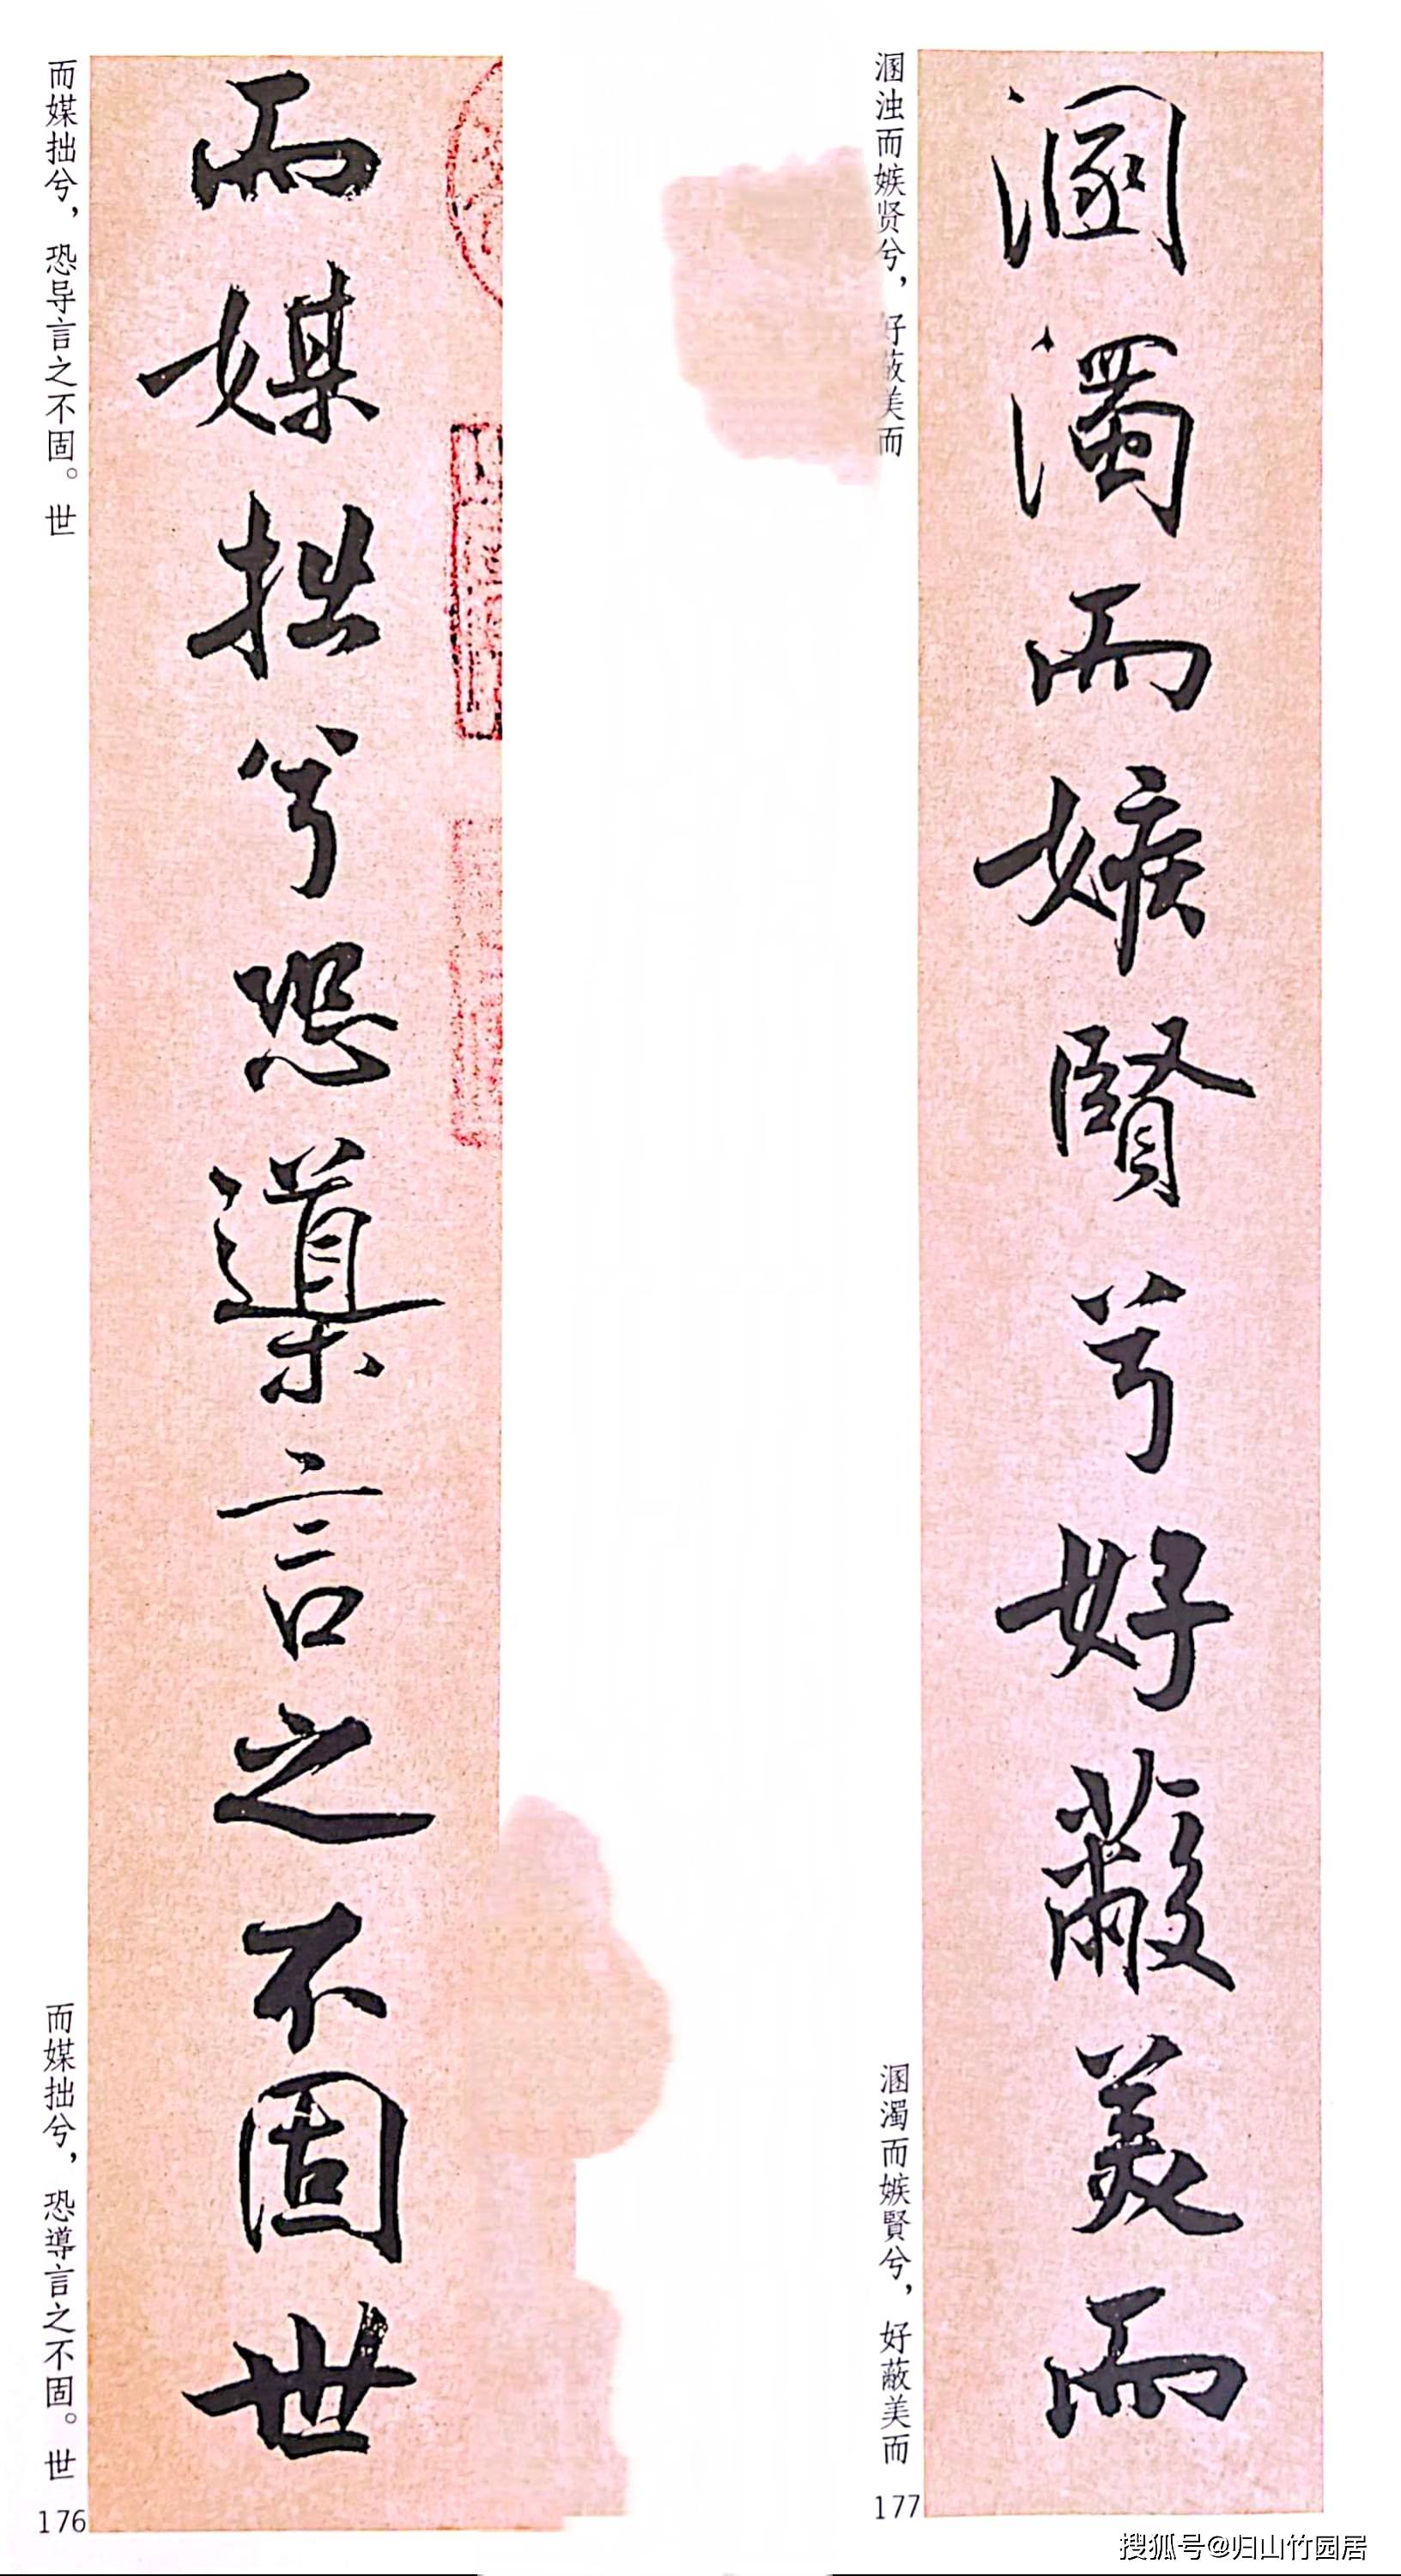 而媒拙兮，恐导言之不固。世
而媒拙兮恐導言之不固世
而媒拙兮，恐導言之不固。世
176
溷浊而嫉贤兮，好蔽美而
溷濁而嫉賢兮好蔽美而
溷濁而嫉賢兮，好蔽美而
177
搜狐号@归山竹园居